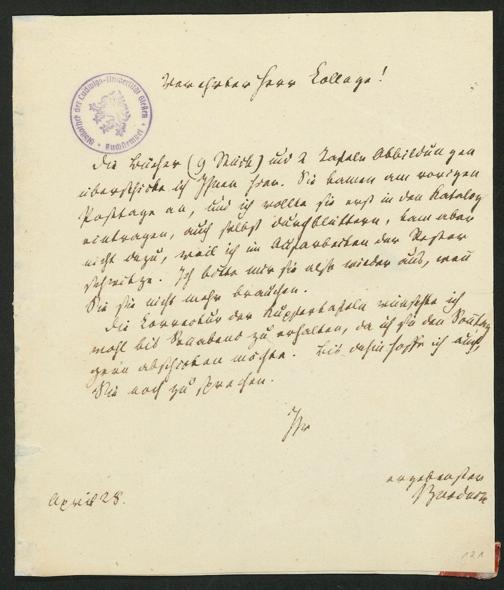 Bibliothek der Ludwigs-Universität Gießen
Verehrter Herr College!
Die Bücher (9 Stück) und 2 Tafeln Abbildungen
überschicke ich Ihnen hier. Sie kamen am vorigen
Posttage an, und ich wollte sie erst in den Katalog
eintragen, auch selbst durchblättern, kam aber
nicht dazu, weil ich im Aufarbeiten der Rester
schwitze. Ich bitte mir sie also wieder aus, wenn
Sie sie nicht mehr brauchen.
Die Correctur der Kupfertafeln wünschte ich
wohl bis Sonabend zu erhalten, da ich sie den Sonntag
gern abschicken möchte. Bis dahin hoffe ich auch,
Sie noch zu sprechen.
Ihr
ergebenster
April 28.
121